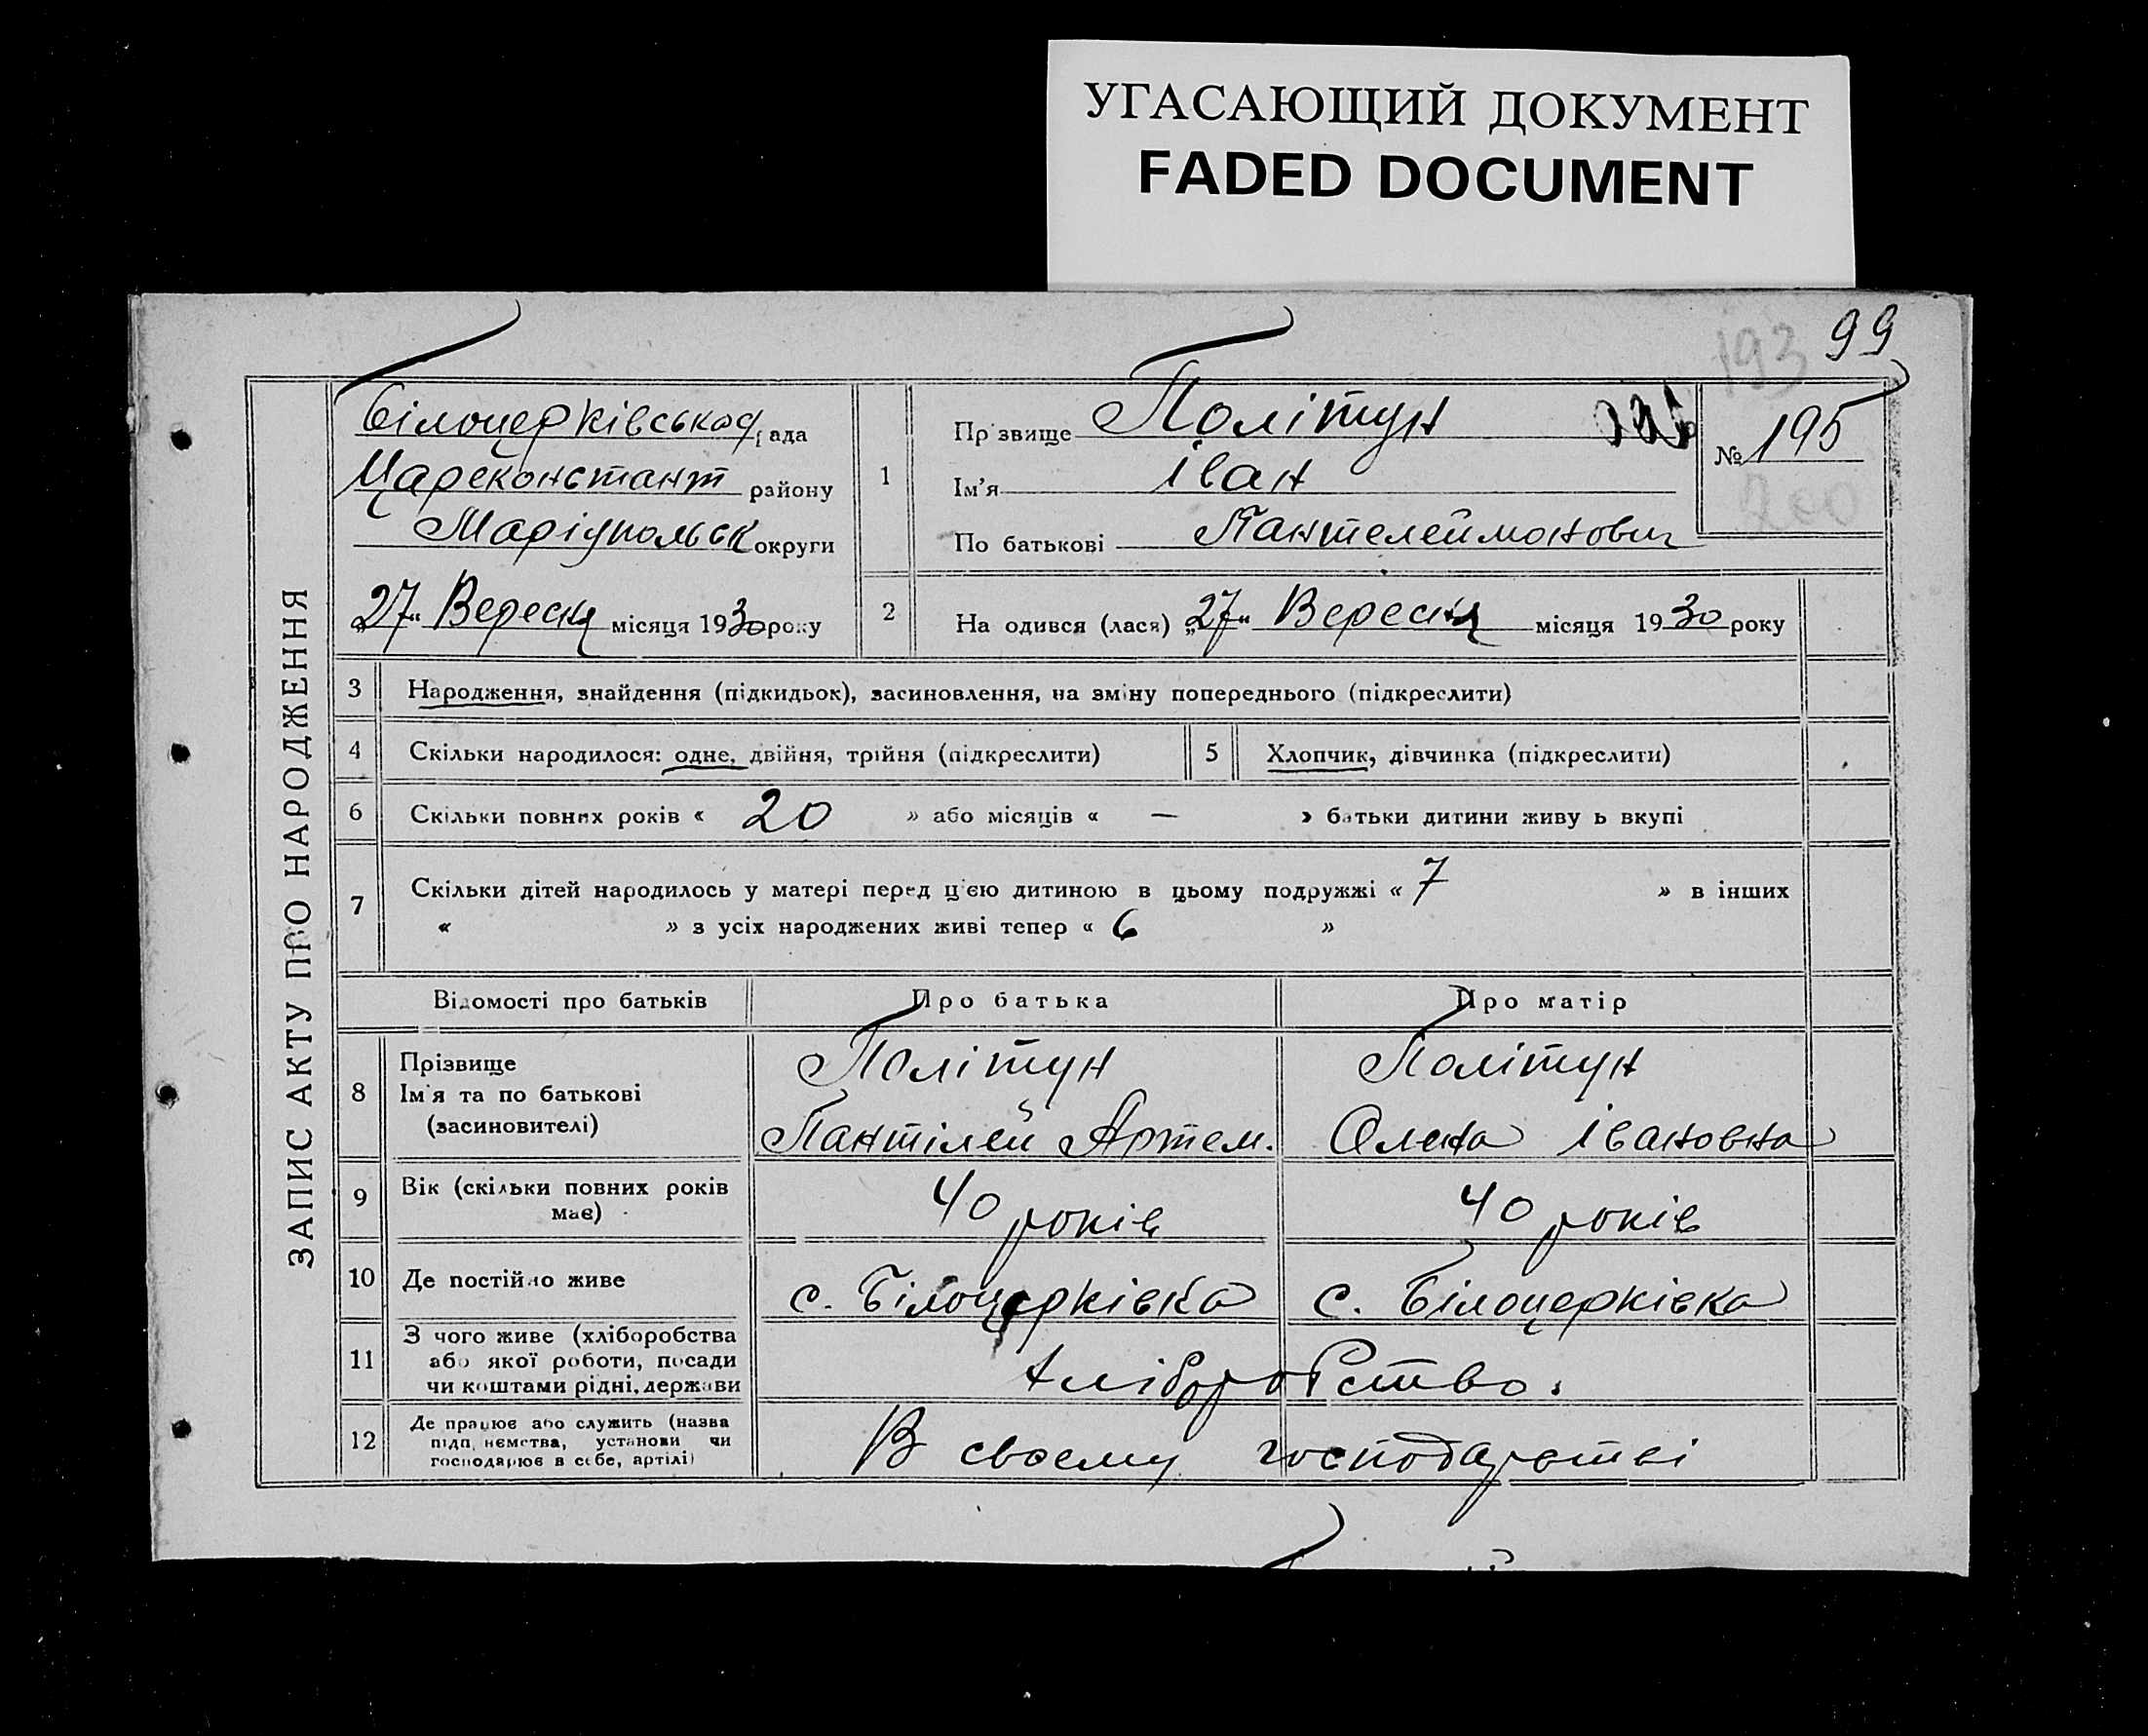 УГАСАЮЩИЙ ДОКУМЕНТ
FADED DOCUMENT
193 99
ЗАПИС АКТУ ПРО НАРОДЖЕННЯ
Білоцерківська рада
Цареконстант району
Маріупольськ округи
„27“ Вересня місяця 1930 року
1
Прізвище Політун
Ім'я Іван
По батькові Пантелеймонович
№ 195
200
2 Народився (лася) „27“ Вересня місяця 1930 року
3 Народження, знайдення (підкидьок), засиновлення, на зміну попереднього (підкреслити)
4 Скільки народилося: одне, двійня, трійня (підкреслити)
5 Хлопчик, дівчинка (підкреслити)
6 Скільки повних років « 20 » або місяців « — » батьки дитини живуть вкупі
7 Скільки дітей народилось у матері перед цією дитиною в цьому подружжі « 7 » в інших
« » з усіх народжених живі тепер « 6 »
Відомості про батьків Про батька Про матір
8 Прізвище
Ім'я та по батькові
(засиновителі)
Політун
Пантілей Артем.
Політун
Олена Івановна
9 Вік (скільки повних років
має)
40 років 40 років
10 Де постійно живе с. Білоцерківка с. Білоцерківка
11 З чого живе (хліборобства
або якої роботи, посади
чи коштами рідні, держави
Хліборобство.
12 Де працює або служить (назва
підприємства, установи чи
господарює в себе, артілі)
В своему господарстві